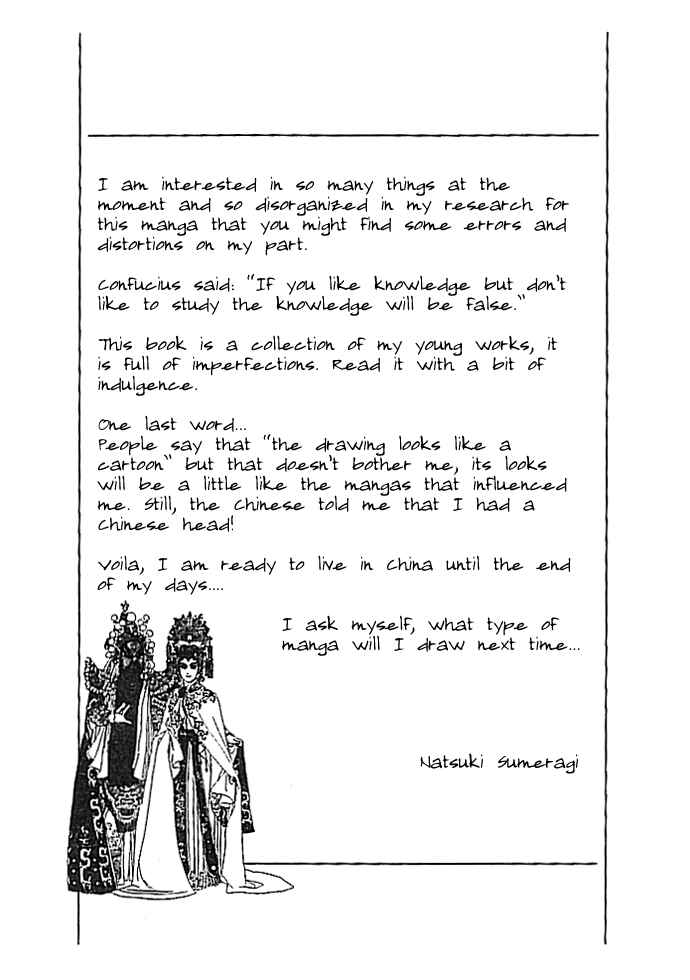 I am interested in so many things at the
moment and so disorganized in my research for
this manga that you might find some errors and
distortions on my part.
Confucius said: "If you like knowledge but don't
like to study the knowledge will be false."
This book is a collection of my young works, it
is full of imperfections. Read it with a bit of
indulgence.
One last word...
People say that "the drawing looks like a
cartoon" but that doesn't bother me, its looks
will be a little like the mangas that influenced
me. Still, the Chinese told me that I had a
Chinese head!
Voila, I am ready to live in China until the end
of my days....
I ask myself, what type of
manga will I draw next time...
Natsuki Sumeragi